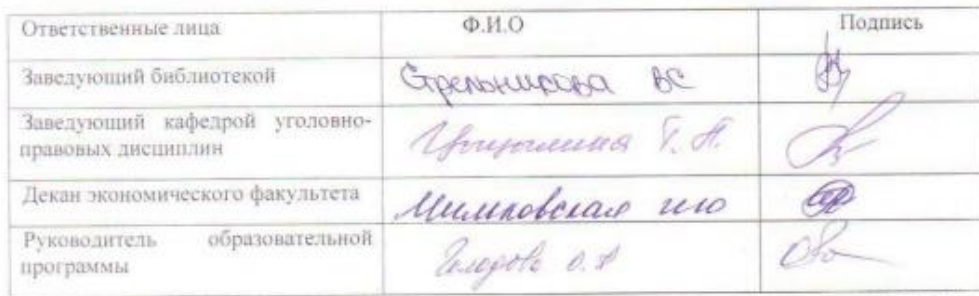 Ответственные лица Ф.И.О Подпись
Заведующий библиотекой Стрельникова ВС
Заведующий кафедрой уголовно-
правовых дисциплин Т. Н.
Декан экономического факультета
Руководитель образовательной
программы О.А